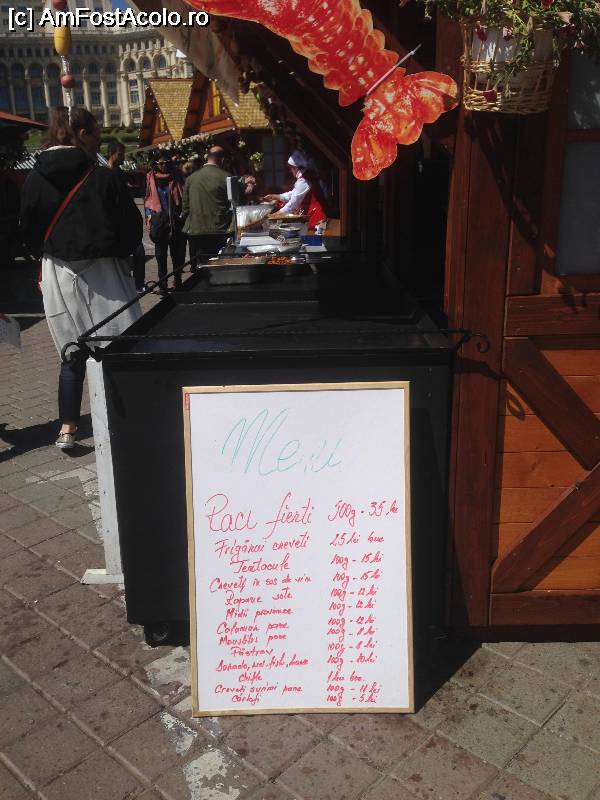 [c] AmFostAcolo.ro
Meniu
Raci fierti 500g - 35 lei
Frigărui creveti 25 lei buc
Tentacule 100g - 15 lei
Creveți în sos de vin 100g - 15 lei
Rapane sote 100g - 12 lei
Midii provensal 100g - 12 lei
Calamar pane 100g - 12 lei
pane 100g - 8 lei
100g - 8 lei
100g - 10 lei
Chifle 1 leu buc.
Creveți surimi pane 100g - 11 lei
Cartofi 100g - 5 lei